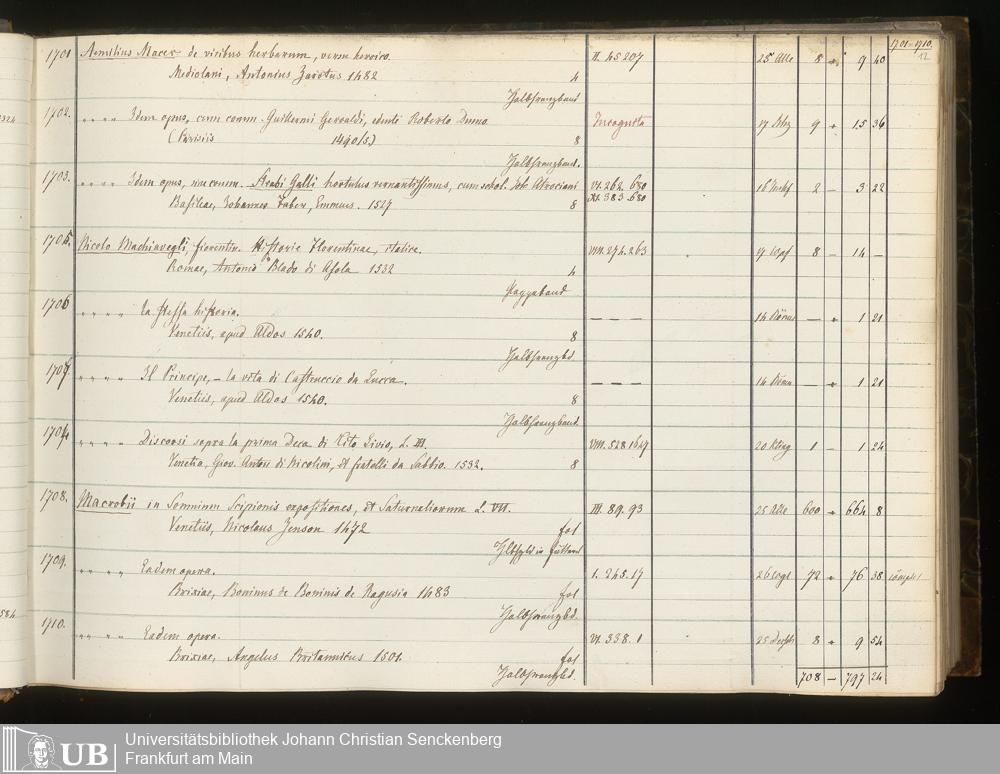 1701-1710.
12
1701 Aemilius Macer de viribus herbarum, versu heroico. II. 45207 25 Alle 8 9 40
Mediolani, Antonius Zarotus 1482 4
Halbfranzband
1702. " " " " Idem opus, cum comm. Guillermi Gueraldi, edente Roberto Dumo. Incognita 17 9 15 36
(Parisiis 1490/5.) 8
Halbfranzband.
1703. " " " " Idem opus, cum comm. Strabi Galli hortulus vernantissimus, cum schol. Joh. Atrociani VI. 262. 680 16 2 — 3 22
Basileae, Johannes Faber, Emmeus. 1527 8 XI. 383. 680
1705. Nicolo Machiavegli, fiorentin. Historie Florentinae, italice. VIII. 274. 263 17 8 — 14 —
Romae, Antonio Blado di Asola 1532 4
Pappband
1706 " " " " La stessa historia. — — — — 14 — 1 21
Venetiis, apud Aldos 1540. 8
Halbfranzbd.
1707 " " " " Il Principe, – la vita di Castruccio da Lucca. — — — — 14 — 1 21
Venetiis, apud Aldos 1540. 8
Halbfranzband
1704 " " " " Discorsi sopra la prima Deca di Tito Livio, L. III. VIII. 528. 1647 20 1 — 1 24
Venetia, Giov. Anton di Nicolini, et fratelli da Sabbio. 1532. 8
1708. Macrobii in Somnium Scipionis expositiones, et Saturnaliorum L. VII. III. 89. 93 25 Alle 600 664 8
Venetiis, Nicolaus Jenson 1472 fol
1709. " " " " Eadem opera. I. 245. 17 26 72 76 38 complet
Brixiae, Boninus de Boninis de Ragusia 1483 fol
Halbfranzbd.
1710. " " " " Eadem opera. VI. 338. 1 25 8 9 54
Brixiae, Angelus Britannicus 1501. fol
Halbfranzbd.
708 — 797 24
UB
Universitätsbibliothek Johann Christian Senckenberg
Frankfurt am Main